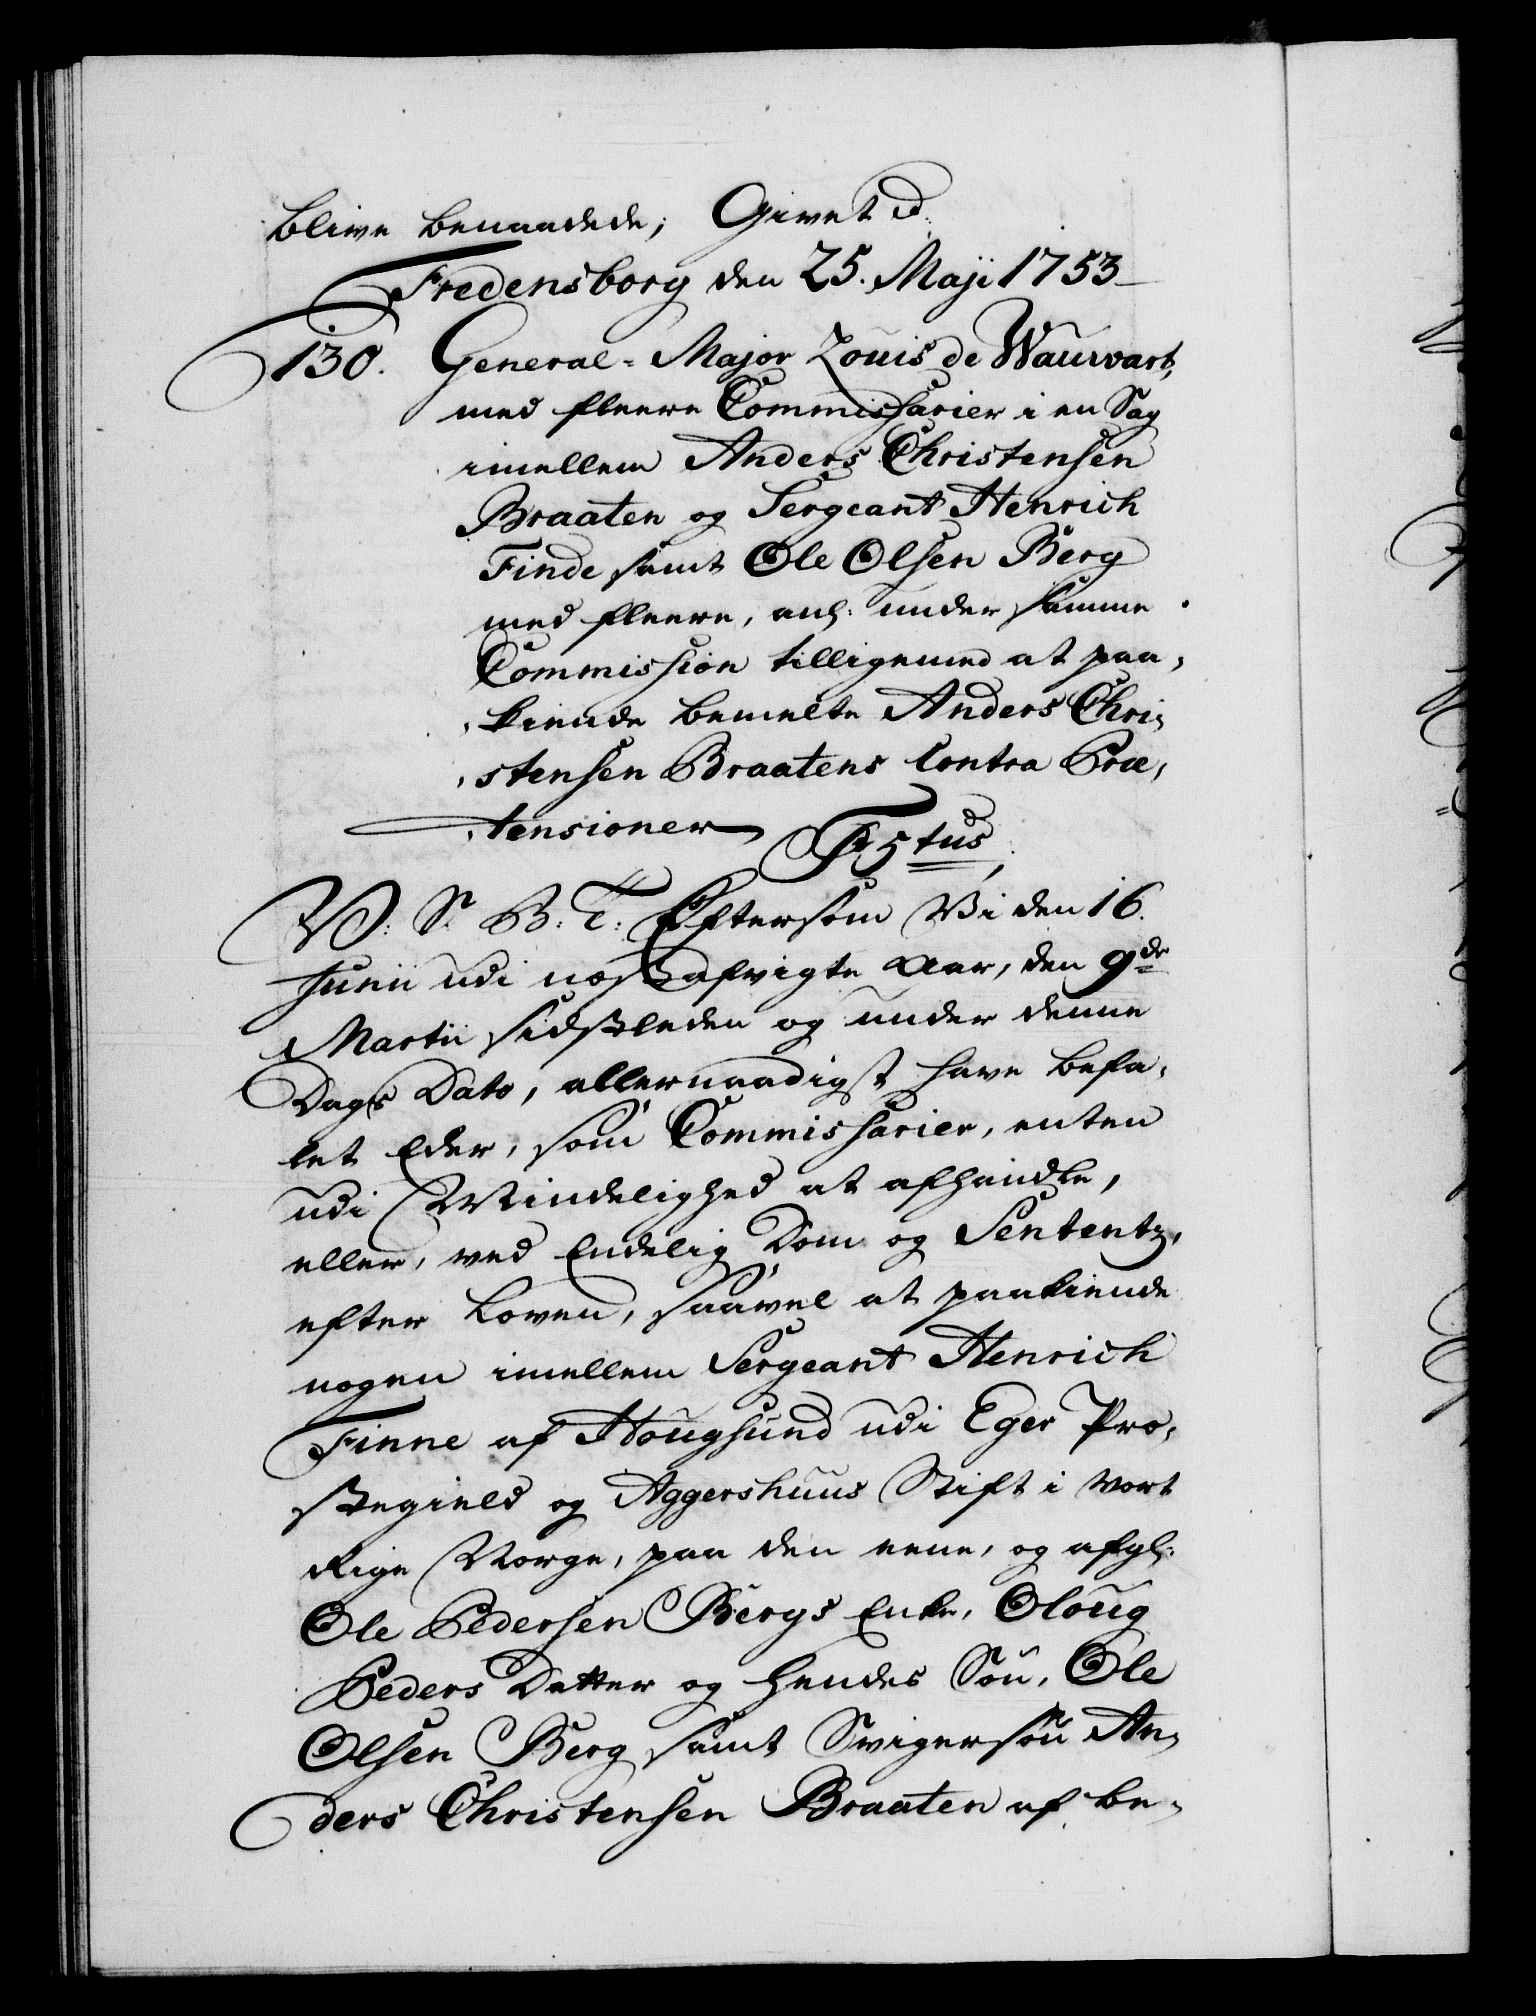 blive benaadede; Givet d.
Fredensborg den 25. Maji 1753
130. General-Major Louis de Wauwart,
med fleere Commissarier i en Sag
imellem Anders Christensen
Braaten og Sergeant Henrich
Finde samt Ole Olsen Berg
med fleere, anl: under samme
Commission tilligemed at paa,
kiende bemelte Anders Chri,
stensen Braatens Contra Præ,
tensioner
V: S: B: T: Eftersom Vi den 16.
Junii udi næstafvigte Aar, den 9de
Martii sidstleden og under denne
Dags Dato, allernaadigst have befa,
let Eder, som Commissarier, enten
udi Mindelighed at afhandle,
eller, ved Endelig Dom og Sententz,
efter Loven, saavel at paakiende
nogen imellem Sergeant Henrich
Finne af Hougsund udi Eger Pro,
stegield og Aggershuus Stift i Vort
Rige Norge, paa den eene, og afgl:
Ole Pedersen Bergs Enke, Oloug
Peders Datter og hendes Søn, Ole
Olsen Berg samt Svigersøn An,
ders Christensen Braaten af be,